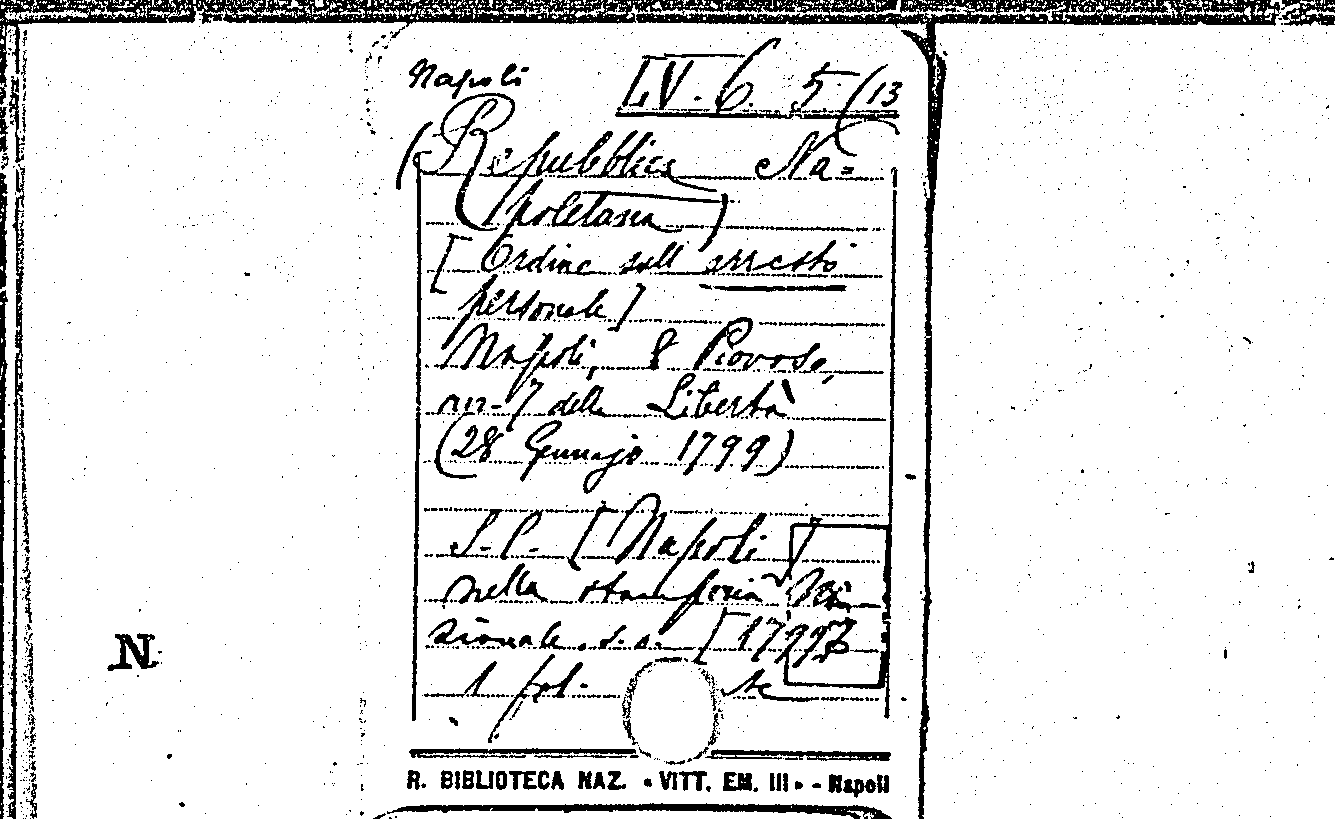 Napoli LV. 6. 5/(13
(Repubblica Na=
poletana)
[Ordine sull'arresto
personale]
Napoli, 8 Piovoso,
ann. 7 della Libertà
(28 Gennajo 1799)
S.P. [Napoli]
nella stamperia Na-
zionale, s.a. [1799]
1 fol.
N
R. BIBLIOTECA NAZ. «VITT. EM. III» - Napoli